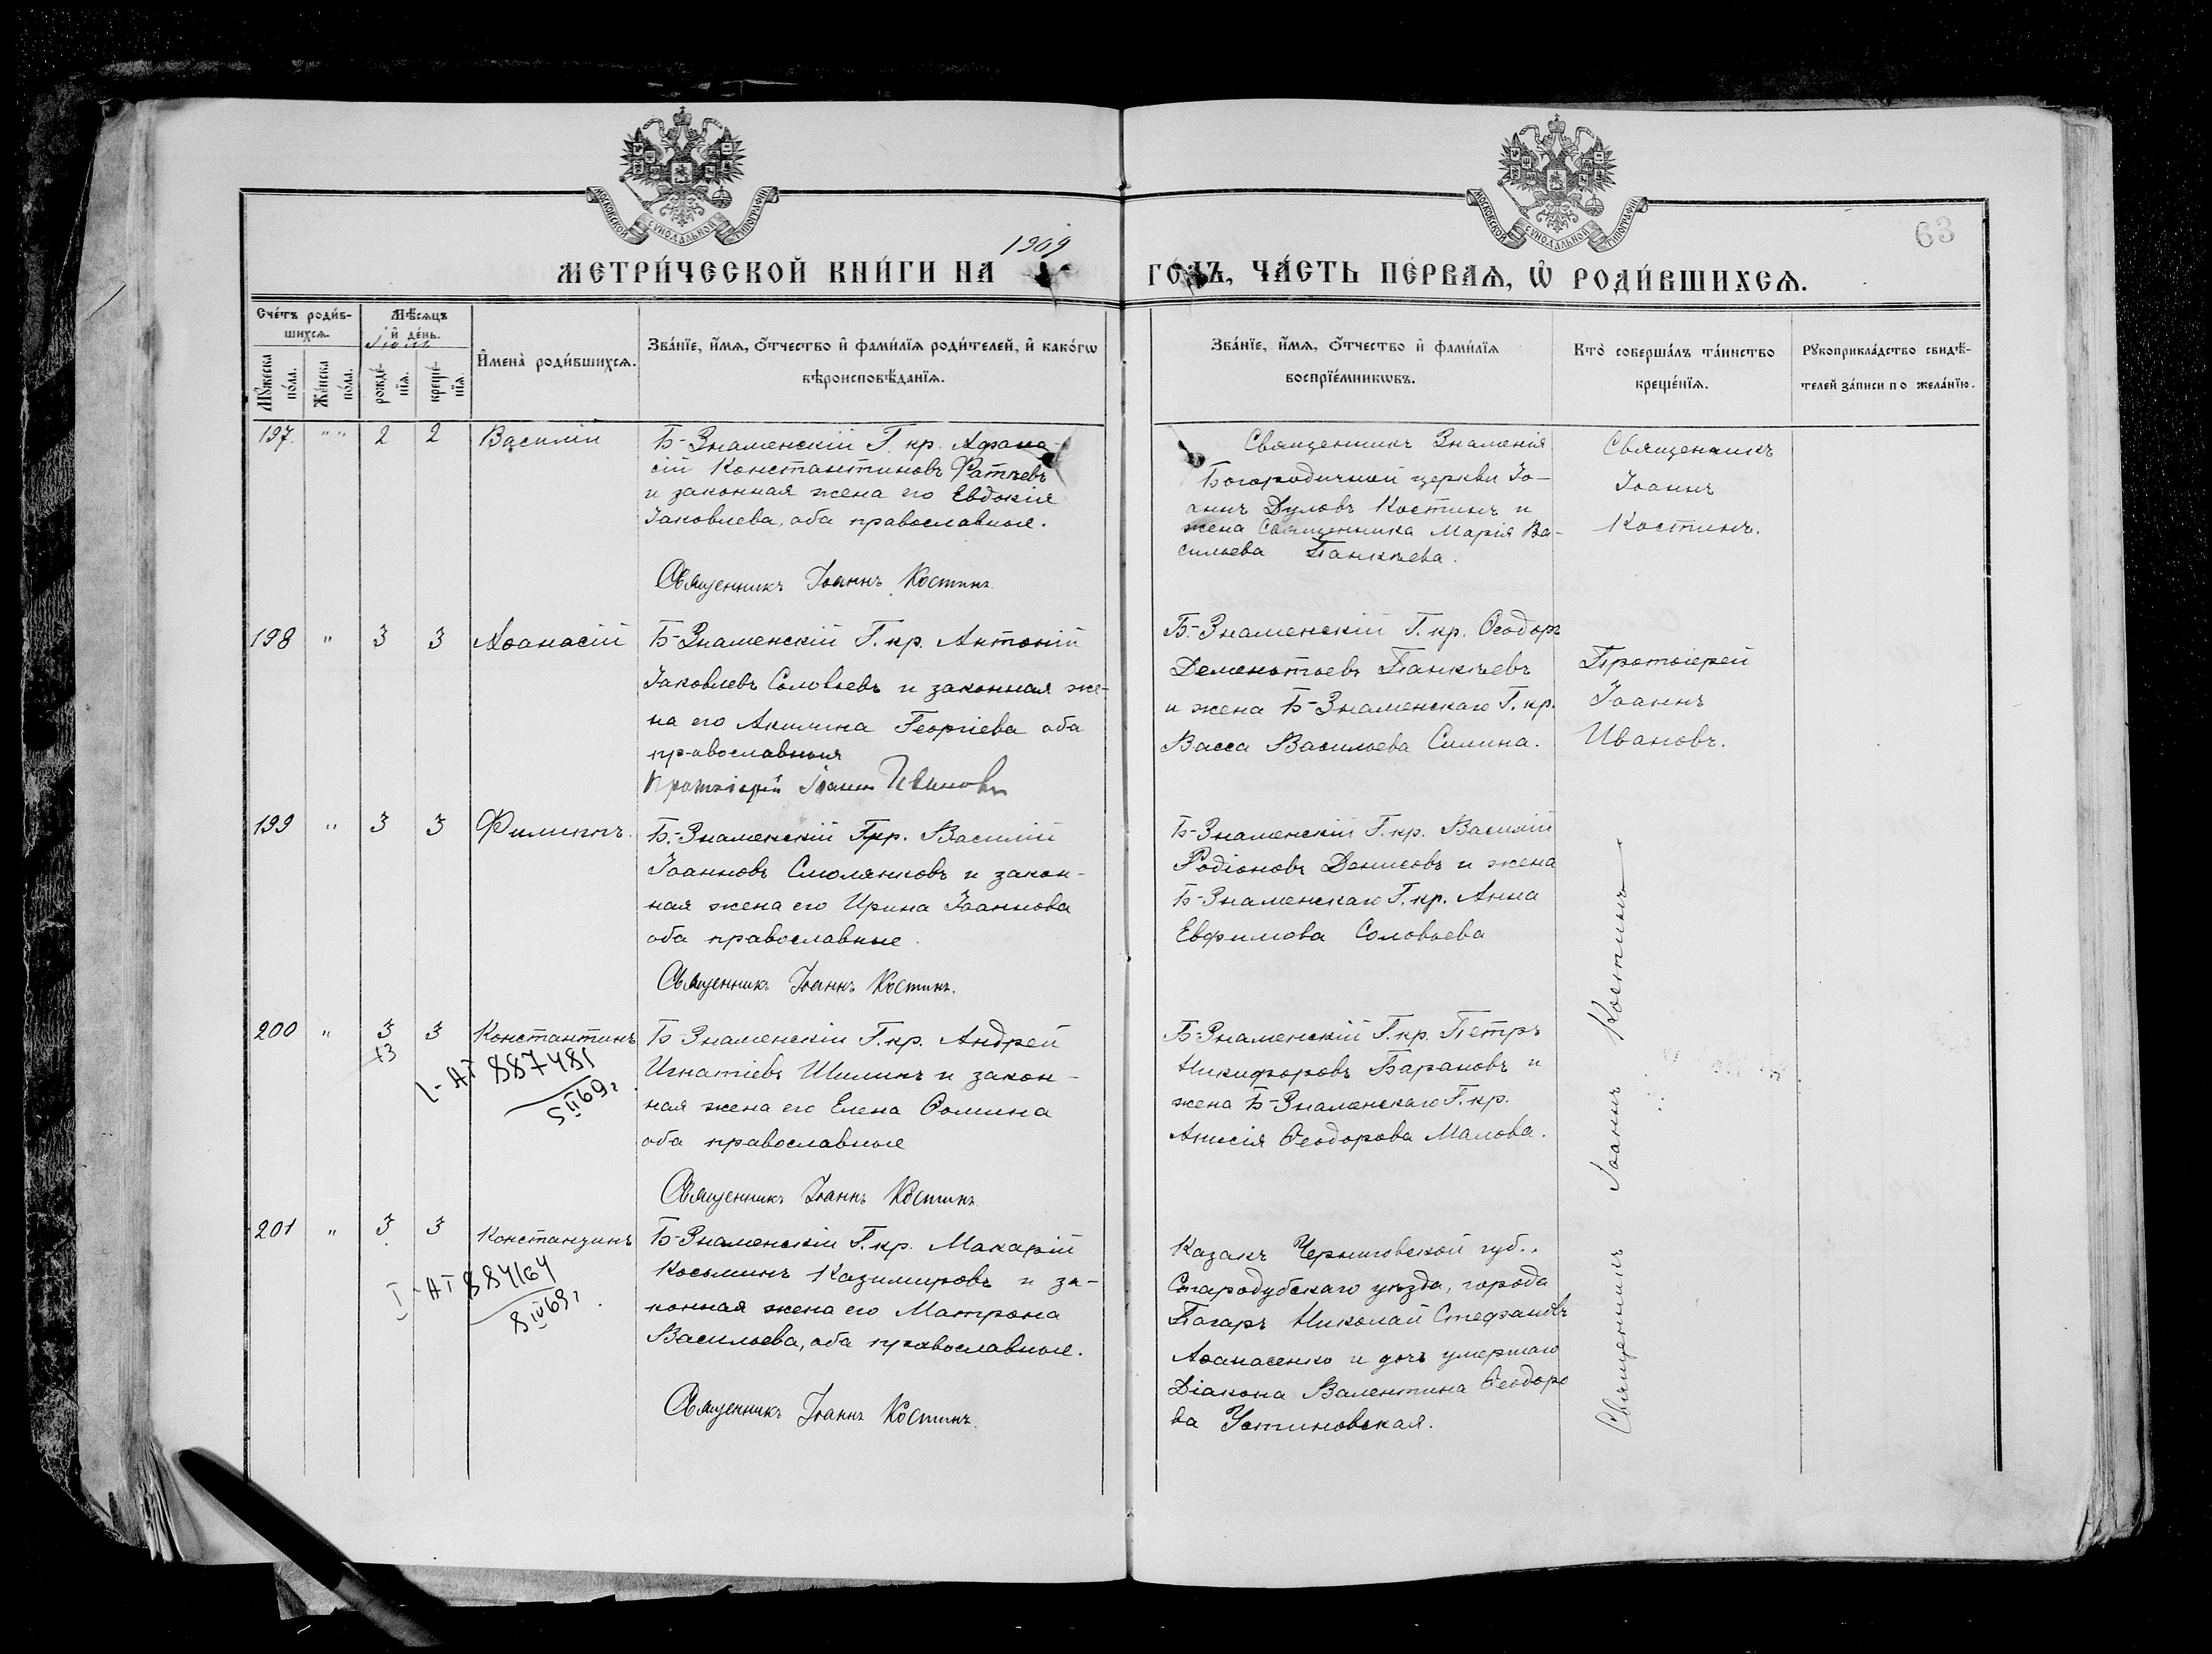 МОСКОВСКОЙ СѴНОДАЛЬНОЙ ТИПОГРАФІИ
МОСКОВСКОЙ СѴНОДАЛЬНОЙ ТИПОГРАФІИ
63
1909
МЕТРИ́ЧЕСКОЙ КНИ́ГИ НА ГО́ДЪ, ЧА́СТЬ ПЕ́РВАѦ, Ѡ РОДИ́ВШИХСѦ.
Сче́тъ роди́в-
шихсѧ.
Мѣ́сѧцъ
и҆ де́нь.
Мꙋ́жеска по́ла.
Же́нска по́ла.
рожде́-нїѧ.
креще́-нїѧ.
И҆мена̀ роди́вшихсѧ.
Зва́нїе, и҆́мѧ, ѻ҆́тчество и҆ фами́лїѧ роди́телей, и҆ како́гѡ
вѣроисповѣ́данїѧ.
Зва́нїе, и҆́мѧ, ѻ҆́тчество и҆ фами́лїѧ
воспрїе́мникѡвъ.
Кто̀ соверша́лъ та́инство
креще́нїѧ.
Рꙋкоприкла́дство свидѣ́-
телей за́писи по жела́нїю.
197. " " 2 2 Василій
Б-Знаменскій Г. кр. Афана-
сій Константиновъ Фатѣевъ
и законная жена его Евдокія
Іаковлева, оба православные.
Священникъ Іоаннъ Костинъ
Священникъ Знаменія
Богородичной церкви Іо-
аннъ Дуловъ Костинъ и
жена Священника Марія Ва-
сильева Панкѣева.
Священникъ
Іоаннъ
Костинъ.
198 " 3 3 Аѳанасій
Б-Знаменскій Г. кр. Антоній
Іаковлевъ Соловьевъ и законная же-
на его Акилина Георгіева оба
православныя
Протоіерей Іоаннъ Ивановъ
Б-Знаменскій Г. кр. Ѳеодоръ
Дементьевъ Панкѣевъ
и жена Б-Знаменскаго Г. кр.
Васса Васильева Силина.
Протоіерей
Іоаннъ
Ивановъ.
199 " 3 3 Филиппъ.
Б-Знаменскій Г.кр. Василій
Іоанновъ Смоляниковъ и закон-
ная жена его Ирина Іоаннова
оба православные.
Священникъ Іоаннъ Костинъ.
Б-Знаменскій Г. кр. Василій
Родіоновъ Денисовъ и жена
Б-Знаменскаго Г. кр. Анна
Евфимова Соловьева
200 " 3 3 Константинъ
13
I-АТ 887481
5 II 69г.
Б-Знаменскій Г. кр. Андрей
Игнатіевъ Шилинъ и закон-
ная жена его Елена Ѳомина
оба православные
Священникъ Іоаннъ Костинъ
Б-Знаменскій Г. кр. Петръ
Никифоровъ Барановъ и
жена Б-Знаменскаго Г. кр.
Анисія Ѳеодорова Малова.
201 " 3 3 Константинъ
I-АТ 884164
8 IV 69г.
Б-Знаменскій Г. кр. Макарій
Косьминъ Казимировъ и за-
конная жена его Матрона
Васильева, оба православные.
Священникъ Іоаннъ Костинъ.
Казакъ Черниговской губ.,
Стародубскаго уѣзда, города
Погаръ Николай Стефановъ
Аѳанасенко и дочь умершаго
Діакона Валентина Ѳеодоро
ва Устиновская.
Священникъ Іоаннъ Костинъ